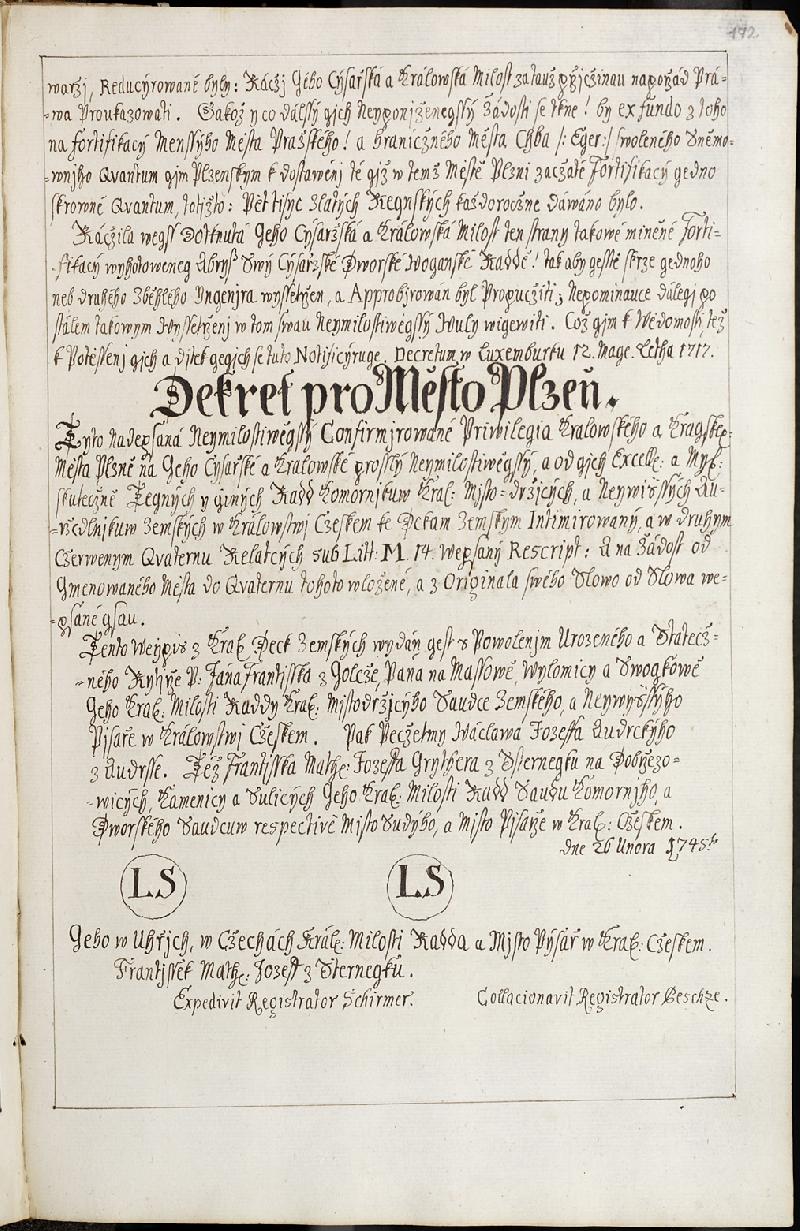 172
warzj, Reducyrowané byly: Ráczj Geho Cýsařská a Králowská Milost za tauž przjczinau na pořád Prá=
=wa Proukazowati. Gakož y co dálssý gich Neyponjženegssý Žádosti se tkne! by ex fundo z toho
na fortifikacý Menssýho Města Pražského! a hraniczného Města Chba /: Eger :/ swoleného Sněmo=
=wnjho Qvantum gjm Plzenským k dostawěnj té giž w temž Městě Plzni zaczaté Fortifikacý gedno
skrowné Qvantum, totižto: Pět tisýc Zlatých Regnských každoroczně dáwáno bylo.
Ráczila wegsš Dottnutá Geho Cýsařžská a Králowská Milost ten strany takowé miněné Forti=
=fikacý wyhotoweneg Abryß Swý Cýsařzské Dworské Woganské Raddě! tak aby gesstě skrze gednoho
neb druhého Zběhlého Yngenjra wyssetřen, a Approbjrowán byl Propuczřiti; Nepominauce dálegj po
stálém takowým Wyssetřenj w tom swau Neymilostiwěgssý Wuly wigewiti. Což gjm k Wědomosti, též
k Potěssenj gich a djtek gegich se tuto Notificýruge. Decretum w Luxemburku 12. Mage. Létha 1717.
Dekret pro Město Plzeň.
Tyto nadepsaná Neymilostiwěgssý Confirmjrowané Priwilegia Králowského a Kragské:
Města Plzně na Geho Cýsařské a Králowské prosslý Neymilostiwěgssý, a od gich Excell: a Myl:
skuteczně Tegných y giných Radd Komornjkuw Král: Mjsto=držjcých, a Neywižssých Au=
=rzědlnjkuw Zemských w Králowstwj Czeském ke Dckám Zemským Intimirowaný, a w druhým
Czerweným Qvaternu Relatcých sub Litt: M. 14. wepsaný Rescript: a na Žádost od
Gmenowaného Města do Qvaternu tohoto wložené, a z Originála swého Slowo od Slowa we=
=psáné gsau.
Tento Weypis z Král: Deck Zemských wydán gest s Powolenjm Urozeného a Statecž=
=ného Rytjře P: Jána Frantisska z Golcze, Pána na Massowě, Wylomicy a Swogkowě
Geho Král: Milosti Raddy Král: Mjstodržjcýho Saudce Zemského, a Neywyžssýho
Pjsaře w Králowstwj Czeském. Pak Peczetmy Wáclawa Jozeffa Audrckýho
z Audrsse. Též Frantisska Math: Jozeffa Grythera z Sternegku na Dobřzczo=
=wicých, Kamenicy a Sulicých Geho Král: Milosti Radd Saudu Komornjho, a
Dworského Saudcuw respectivè Mjsto Sudyho, a Mjsto Pjsařze w Král: Czeském.
dne 26 Února 1748ho
L.S L.S
Geho w Uhřjch, w Czechách Král: Milosti Radda a Mjsto Pýsař w Král: Czeském.
Frantjssek Math: Jozeff z Sternegku.
Expedivit Registrator Schirmer. Collacionavit Registrator Peschze.